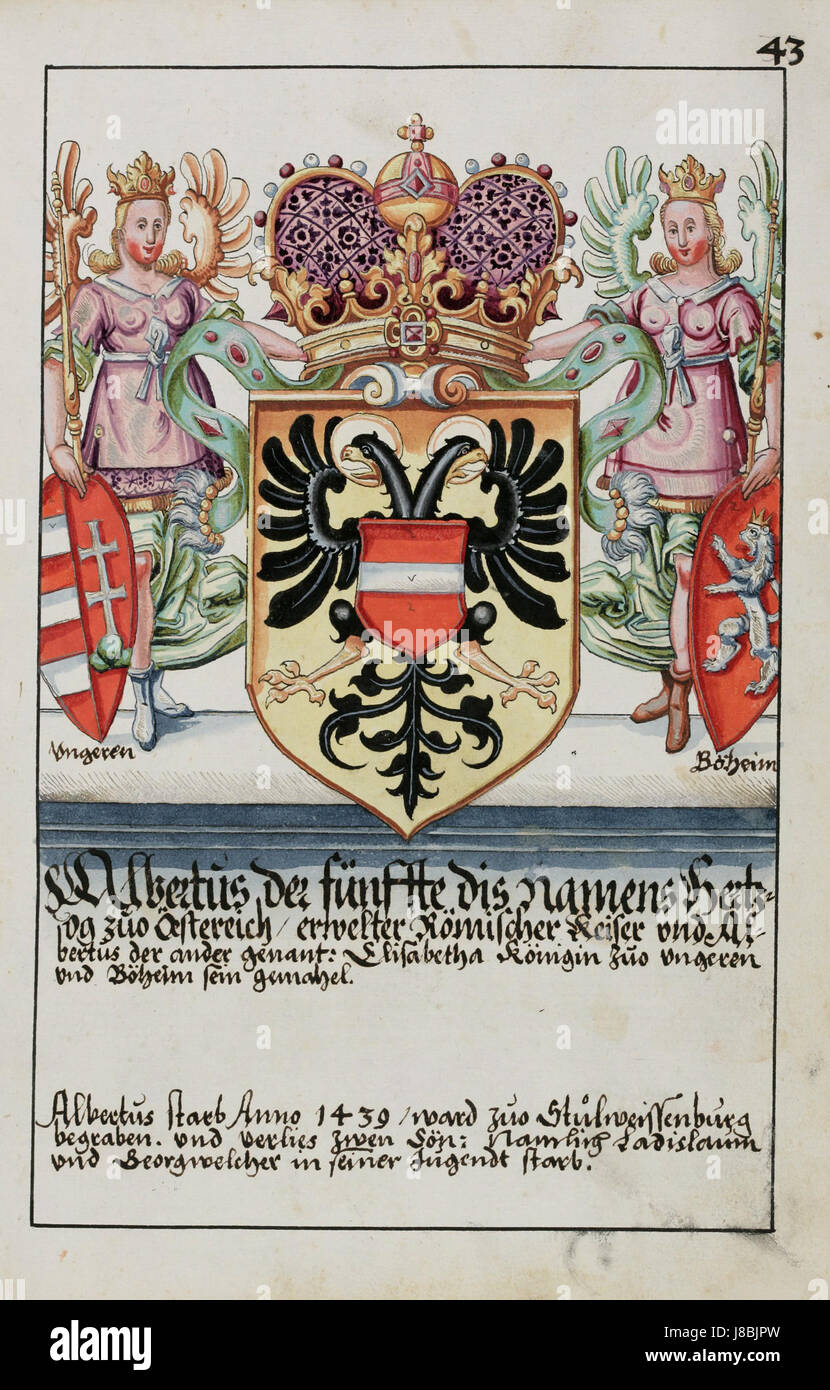 43
Ungeren
Böheim
Albertus der fünffte dis Namens Hertz-
og zuo Östereich / erwelter Römischer Keiser vnd Al-
bertus der ander genant: Elisabetha Köingin zuo vngeren
vnd Böheim sein gemahel.
Albertus starb Anno 1439 / ward zuo Stůlweissenburg
begraben. vnd verlies zwen Sön: Namlich Ladislaum
vnd Georg welcher in seiner Jugendt starb.
alamy
Image ID: J8BJPW
www.alamy.com